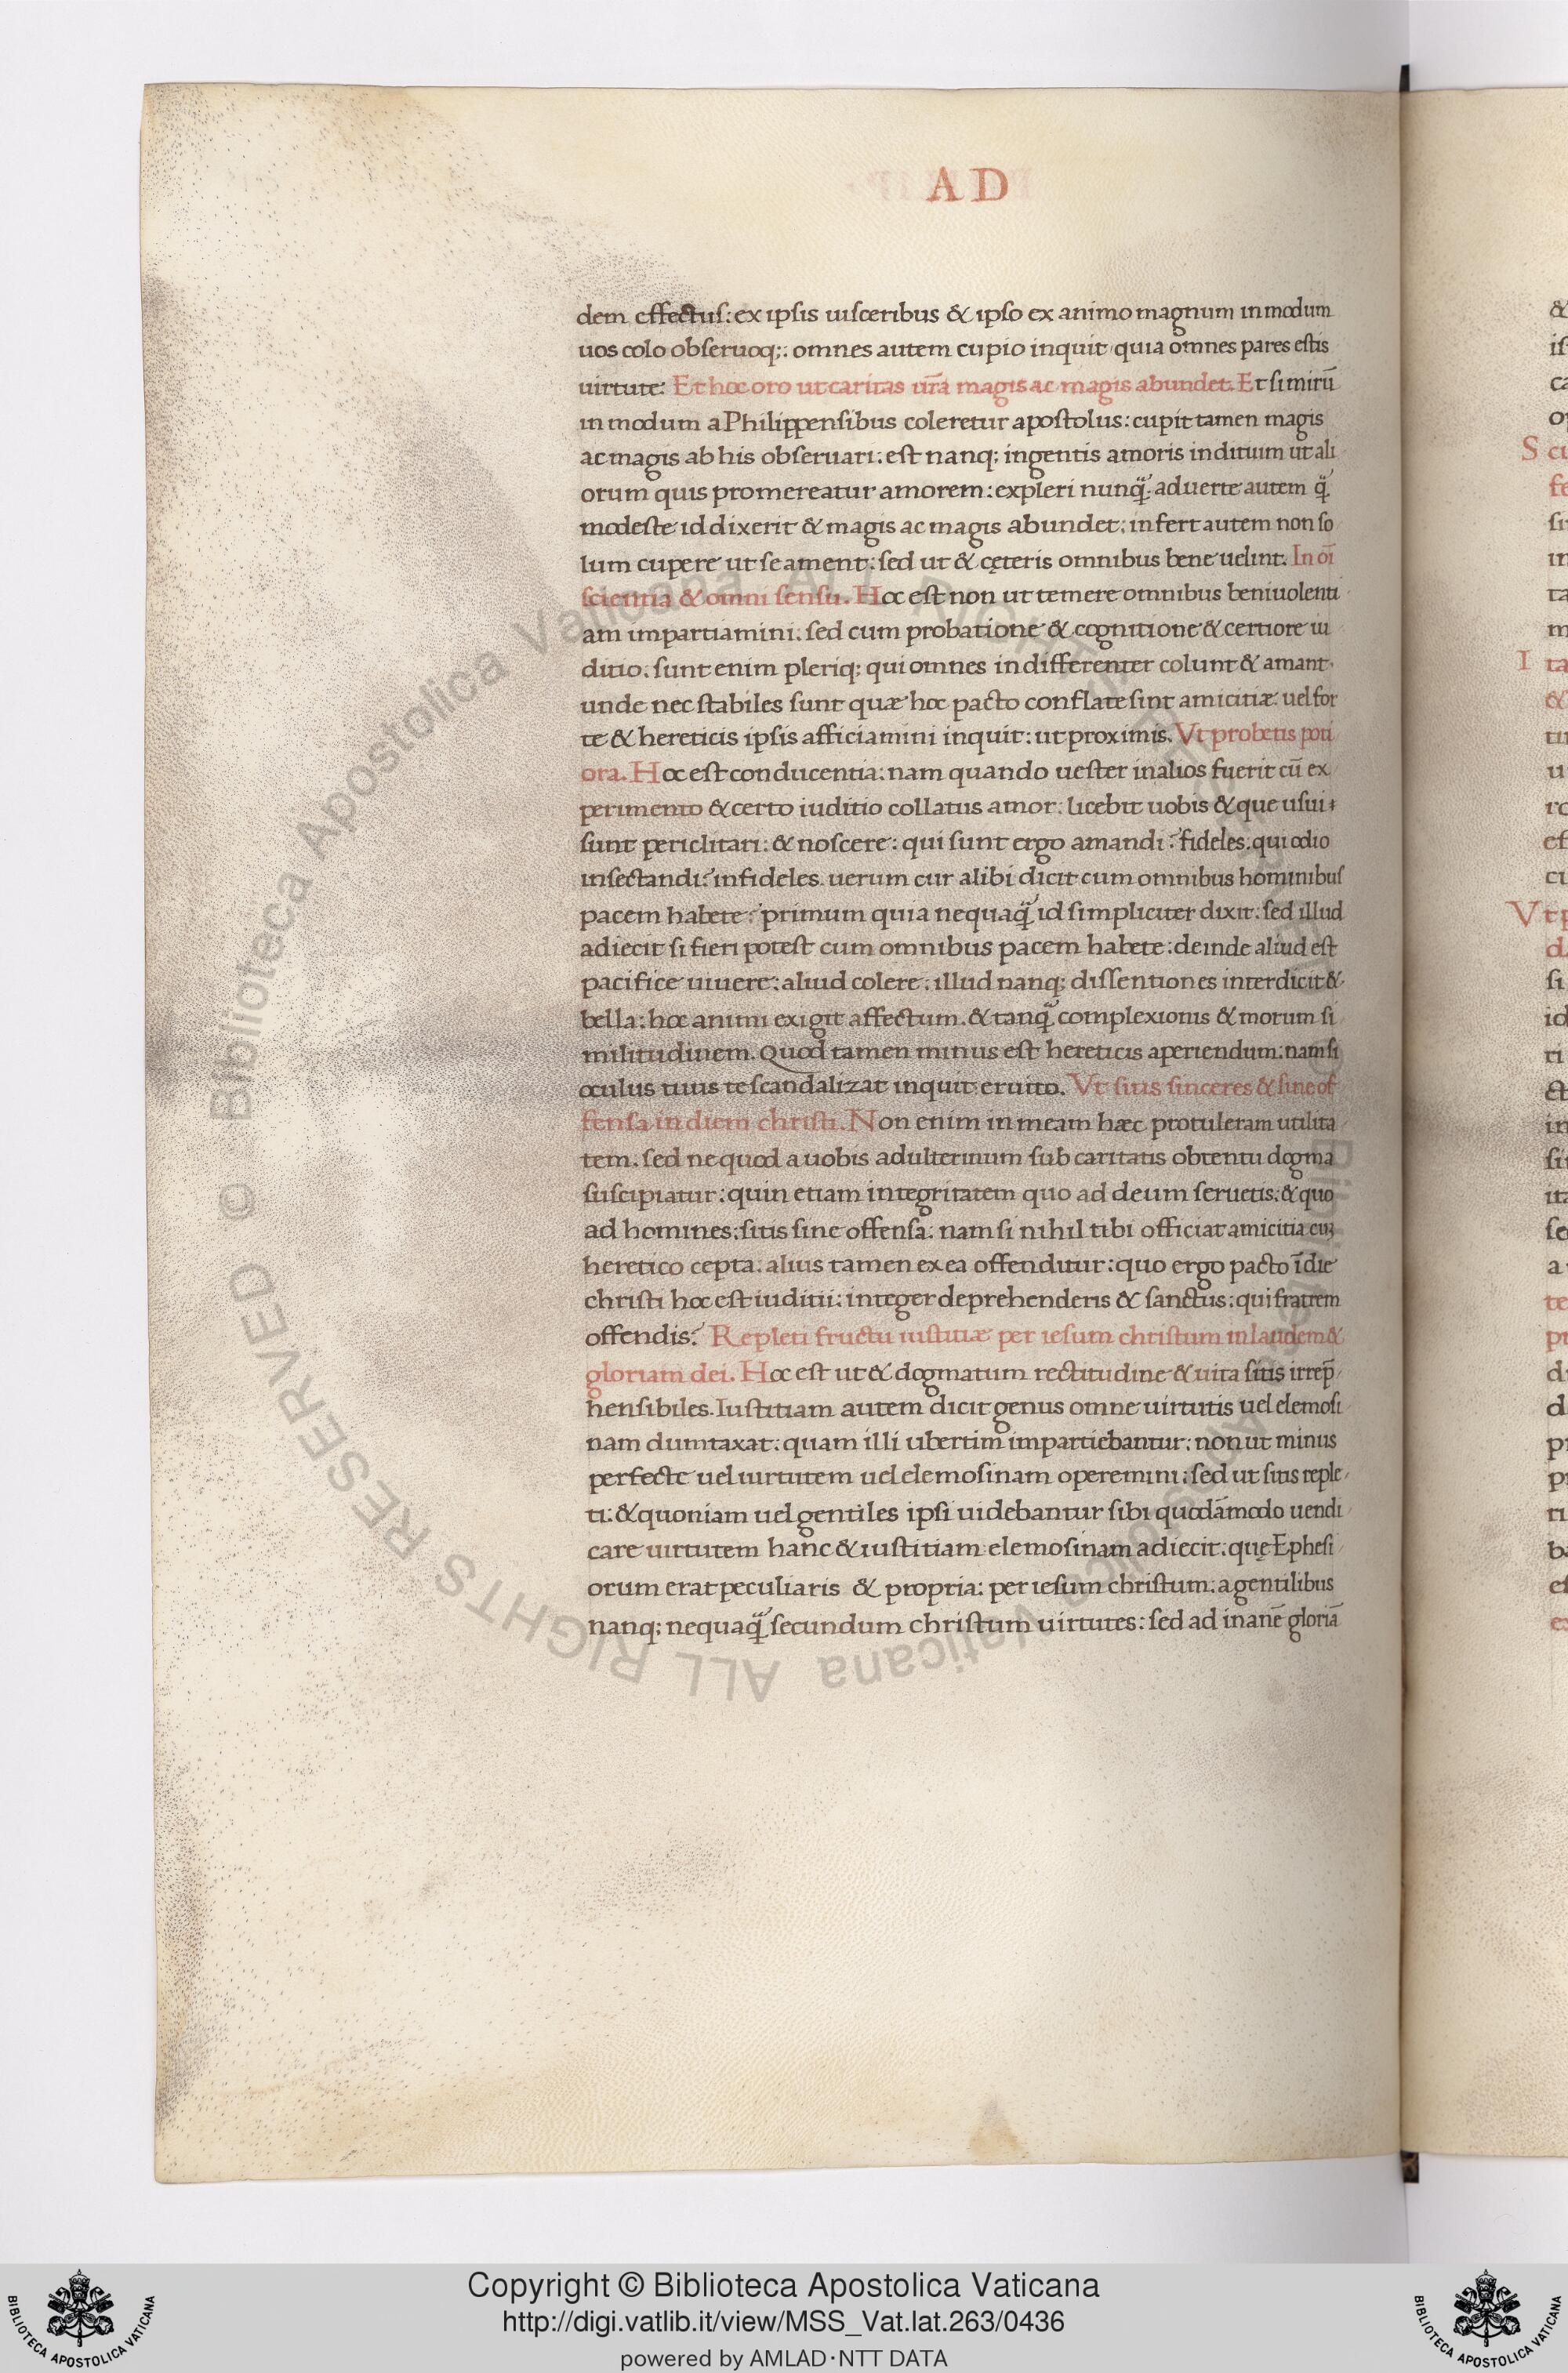 AD
dem effectus: ex ipsis uisceribus & ipso ex animo magnum in modum
uos colo obseruoq;: omnes autem cupio inquit quia omnes pares estis
uirtute: Et hoc oro ut caritas ur̄a magis ac magis abundet. Et si mirū
in modum a Philippensibus coleretur apostolus: cupit tamen magis
ac magis ab his obseruari: est nanq; ingentis amoris inditium ut ali
orum quis promereatur amorem: expleri nunq̃: aduerte autem q̃
modeste id dixerit & magis ac magis abundet: infert autem non so
lum cupere ut se ament: sed ut & cęteris omnibus bene uelint. In oī
scientia & omni sensu. Hoc est non ut temere omnibus beniuolenti
am impartiamini: sed cum probatione & cognitione & certiore iu
ditio. sunt enim pleriq; qui omnes indifferenter colunt & amant.
unde nec stabiles sunt quæ hoc pacto conflate sint amicitiæ. uel for
te & hereticis ipsis afficiamini inquit: ut proximis. Vt probetis poti
ora. Hoc est conducentia: nam quando uester in alios fuerit cū ex
perimento & certo iuditio collatus amor: licebit uobis & que usui
sunt periclitari: & noscere: qui sunt ergo amandi? fideles: qui odio
insectandi? infideles. uerum cur alibi dicit cum omnibus hominibus
pacem habete? primum quia nequaq̃ id simpliciter dixit: sed illud
adiecit si fieri potest cum omnibus pacem habete: deinde aliud est
pacifice uiuere: aliud colere: illud nanq; dissentiones interdicit &
bella: hoc animi exigit affectum. & tanq̃ complexionis & morum si
militudinem. Quod tamen minus est hereticis aperiendum: nam si
oculus tuus te scandalizat inquit eruito. Vt sitis sinceres & sine of
fensa in diem christi. Non enim in meam hæc protuleram utilita
tem. sed ne quod a uobis adulterinum sub caritatis obtentu dogma
suscipiatur: quin etiam integritatem quo ad deum seruetis: & quo
ad homines: sitis sine offensa: nam si nihil tibi officiat amicitia cuȝ
heretico cepta: alius tamen ex ea offenditur: quo ergo pacto ī die
christi hoc est iuditii: integer deprehenderis & sanctus: qui fratrem
offendis? Repleti fructu iustitiæ per iesum christum in laudem &
gloriam dei. Hoc est ut & dogmatum rectitudine & uita sitis irrep̄
hensibiles. Iustitiam autem dicit genus omne uirtutis uel elemosi
nam dumtaxat: quam illi ubertim impartiebantur: non ut minus
perfecte uel uirtutem uel elemosinam operemini: sed ut sitis reple
ti: & quoniam uel gentiles ipsi uidebantur sibi quodāmodo uendi
care uirtutem hanc & iustitiam elemosinam adiecit: quę Ephesi
orum erat peculiaris & propria: per iesum christum: a gentilibus
nanq; nequaq̃ secundum christum uirtutes: sed ad inanē gloriā
© Biblioteca Apostolica Vaticana ALL RIGHTS RESERVED
Copyright © Biblioteca Apostolica Vaticana
http://digi.vatlib.it/view/MSS_Vat.lat.263/0436
powered by AMLAD·NTT DATA
BIBLIOTECA APOSTOLICA VATICANA
BIBLIOTECA APOSTOLICA VATICANA